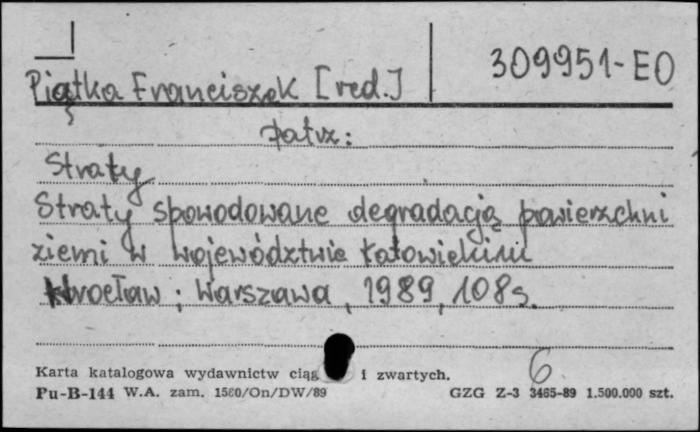 309951-EO
Piątka Franciszek [red.]
patrz:
Straty
Straty spowodowane degradacją powierzchni
ziemi w województwie katowickim
Wrocław ; Warszawa, 1989, 108 s.
6
Karta katalogowa wydawnictw ciąg i zwartych.
Pu-B-144 W.A. zam. 1560/On/DW/89 GZG Z-3 3465-89 1.500.000 szt.